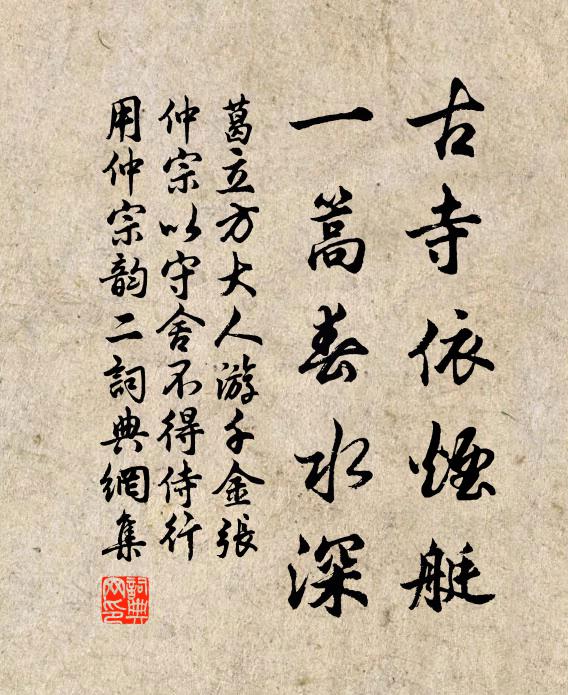 古寺依煙艇
一篙春水深
葛立方大人游千金張
仲宗以守舍不得侍行
用仲宗韵二詞典網集
詞典網印